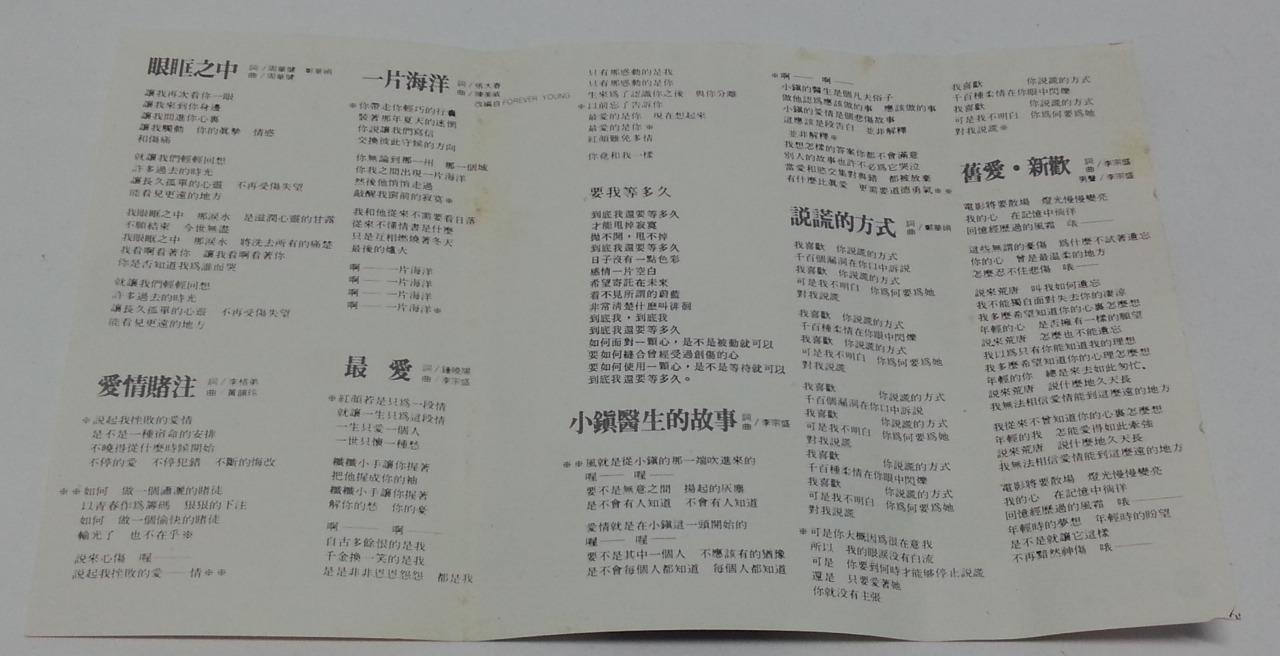 眼眶之中
詞／周華健 鄭華娟
曲／周華健
讓我再次看你一眼
讓我來到你身邊
讓我問進你心裏
讓我觸動 你的真摯 情感
和傷痛
就讓我們輕輕回想
許多過去的時光
讓長久孤單的心靈 不再受傷失望
能看見更遠的地方
我眼眶之中 那淚水 是滋潤心靈的甘露
不願結束 今世無盡
我眼眶之中 那淚水 將洗去所有的痛楚
我看啊看著你 讓我看啊看著你
你是否知道我為誰而哭
就讓我們輕輕回想
許多過去的時光
讓長久孤單的心靈 不再受傷失望
能看見更遠的地方
愛情賭注
詞／李格弟
曲／黃韻玲
※說起我挫敗的愛情
是不是一種宿命的安排
不曉得從什麼時候開始
不停的愛 不停犯錯 不斷的悔改
※※如何 做一個瀟灑的賭徒
以青春作為籌碼 狠狠的下注
如何 做一個愉快的賭徒
輸光了 也不在乎※
說來心傷 喔——
說起我挫敗的愛——情※※
一片海洋
詞／張大春
曲／陳美威
改編自FOREVER YOUNG
※你帶走你輕巧的行囊
裝著那年夏天的迷惘
你說讓我們寫信
交換彼此守候的方向
你無論到那一州 那一個城
你我之間出現一片海洋
然後他悄悄走過
敲醒我窗前的寂寞※
我和他從來不需要看日落
從來不懂情書是什麼
只是互相燃燒著冬天
最後的爐火
啊——一片海洋
啊——一片海洋
啊——一片海洋
啊——一片海洋※
最愛
詞／鍾曉陽
曲／李宗盛
※紅顏若是只為一段情
就讓一生只為這段情
一生只愛一個人
一世只懷一種愁
纖纖小手讓你握著
把他握成你的袖
纖纖小手讓你握著
解你的愁 你的憂
啊—— 啊——
自古多餘恨的是我
千金換一笑的是我
是是非非恩恩怨怨 都是我
只有那感動的是我
只有那感動的是你
生來為了認識你之後 與你分離
※以前忘了告訴你
最愛的是你 現在想起來
最愛的是你※
紅顏難免多情
你竟和我一樣
要我等多久
到底我還要等多久
才能甩掉寂寞
拋不開，甩不掉
到底我還要等多久
日子沒有一點色彩
感情一片空白
希望寄託在未來
看不見所謂的蔚藍
非常清楚什麼叫徘徊
到底我，到底我
到底我還要等多久
如何面對一顆心，是不是被動就可以
要如何縫合曾經受過創傷的心
要如何使用一顆心，是不是等待就可以
到底我還要等多久。
小鎮醫生的故事
詞／李宗盛
曲
※※風就是從小鎮的那一端吹進來的
喔—— 喔——
要不是無意之間 揚起的灰塵
是不會有人知道 不會有人知道
愛情就是在小鎮這一頭開始的
喔—— 喔——
要不是其中一個人 不應該有的猶豫
是不會每個人都知道 每個人都知道
※啊—— 啊——
小鎮的醫生是個凡夫俗子
做他認為應該做的事 應該做的事
小鎮的愛情是個悲傷故事
這應該是段告白 並非解釋
並非解釋※
我想怎樣的答案你都不會滿意
別人的故事也許不必為它哭泣
當愛和慾交集對與錯 都被放棄
有什麼比真愛 更需要道德勇氣※※
說謊的方式
詞／鄭華娟
曲
我喜歡 你說謊的方式
千百個漏洞在你口中訴說
我喜歡 你說謊的方式
可是我不明白 你為何要為她
對我說謊
我喜歡 你說謊的方式
千百種柔情在你眼中閃爍
我喜歡 你說謊的方式
可是我不明白 你為何要為她
對我說謊
我喜歡 你說謊的方式
千百個漏洞在你口中訴說
我喜歡 你說謊的方式
可是我不明白 你為何要為她
對我說謊
我喜歡 你說謊的方式
千百種柔情在你眼中閃爍
我喜歡 你說謊的方式
可是我不明白 你為何要為她
對我說謊
※可是你大概因為很在意我
所以 我的眼淚沒有白流
可是 你要到何時才能够停止說謊
還是 只要愛著她
你就沒有主張
我喜歡 你說謊的方式
千百種柔情在你眼中閃爍
我喜歡 你說謊的方式
可是我不明白 你為何要為她
對我說謊※
舊愛・新歡
詞／李宗盛
曲
男聲／李宗盛
電影將要散場 燈光慢慢變亮
我的心 在記憶中徜徉
回憶經歷過的風霜 哦——
這些無謂的憂傷 為什麼不試著遺忘
你的心 曾是最溫柔的地方
怎麼忍不住悲傷 哦——
說來荒唐 叫我如何遺忘
我不能獨自面對失去你的淒涼
我多麼希望知道你的心裏怎麼想
年輕的心 是否擁有一樣的願望
說來荒唐 怎麼也不能遺忘
我以為只有你能知道我的理想
我多麼希望知道你的心理怎麼想
年輕的你 總是來去如此匆忙、
說來荒唐 說什麼地久天長
我無法相信愛情能到這麼遠的地方
我從來不曾知道你的心裏怎麼想
年輕的我 怎能愛得如此牽強
說來荒唐 說什麼地久天長
我無法相信愛情能到這麼遠的地方
電影將要散場 燈光慢慢變亮
我的心 在記憶中徜徉
回憶經歷過的風霜 哦——
年輕時的夢想 年輕時的盼望
是不是就讓它這樣
不再黯然神傷 哦——